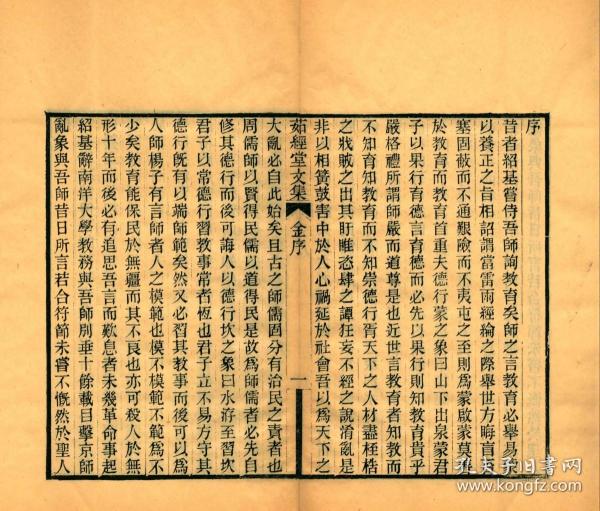 序
昔者紹基嘗侍吾師詢教育矣師之言教育必舉易
以養正之旨相詔謂當雷雨經綸之際舉世方晦盲否
塞固蔽而不通艱險而不夷屯之至則爲蒙啟蒙莫先
於教育而教育首重夫德行蒙之象曰山下出泉蒙君
子以果行育德言育德而必先以果行則知教育貴乎
嚴格禮所謂師嚴而道尊是也近世言教育者知教而
不知育知教育而不知崇德行胥天下之人材盡桎梏
之戕賊之出其盱睢恣肆之譚狂妄不經之說淆亂是
非以相簧鼓害中於人心禍延於社會吾以爲天下之
茹經堂文集 金序 一
大亂必自此始矣且古之師儒固分有治民之責者也
周儒師以賢得民儒以道得民是故爲師儒者必先自
修其德行而後可誨人以德行坎之象曰水洊至習坎
君子以常德行習教事常者恆也君子立不易方守其
德行旣有以端師範矣然又必習其教事而後可以爲
人師楊子有言師者人之模範也模不模範不範爲不
少矣教育能保民於無疆而其不良也亦可殺人於無
形十年而後必有追思吾言而歎息者未幾革命事起
紹基辭南洋大學教務與吾師別垂十餘載目擊京師
亂象與吾師昔日所言若合符節未嘗不慨然於聖人
孔夫子旧书网
www.kongfz.com